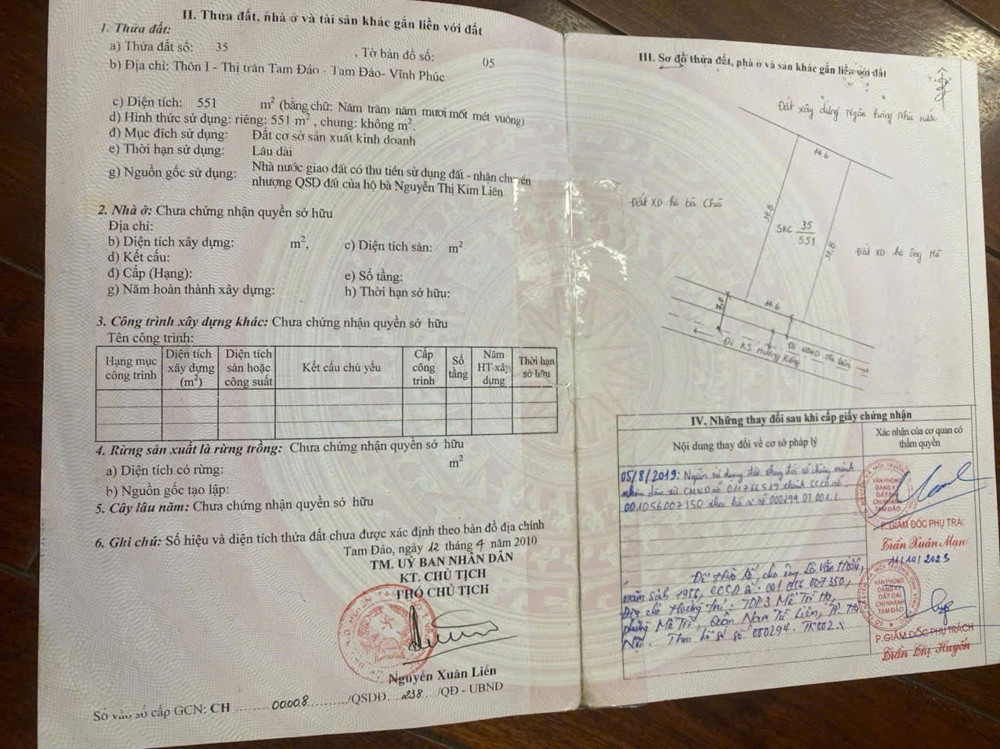 II. Thửa đất, nhà ở và tài sản khác gắn liền với đất
1. Thửa đất:
a) Thửa đất số: 35 , Tờ bản đồ số: 05
b) Địa chỉ: Thôn I - Thị trấn Tam Đảo - Tam Đảo- Vĩnh Phúc
c) Diện tích: 551 m² (bằng chữ: Năm trăm năm mươi mốt mét vuông)
d) Hình thức sử dụng: riêng: 551 m², chung: không m².
đ) Mục đích sử dụng: Đất cơ sở sản xuất kinh doanh
e) Thời hạn sử dụng: Lâu dài
g) Nguồn gốc sử dụng: Nhà nước giao đất có thu tiền sử dụng đất - nhận chuyển
nhượng QSD đất của hộ bà Nguyễn Thị Kim Liên
2. Nhà ở: Chưa chứng nhận quyền sở hữu
Địa chỉ:
b) Diện tích xây dựng: m², c) Diện tích sàn: m²
d) Kết cấu:
đ) Cấp (Hạng): e) Số tầng:
g) Năm hoàn thành xây dựng: h) Thời hạn sở hữu:
3. Công trình xây dựng khác: Chưa chứng nhận quyền sở hữu
Tên công trình:
Hạng mục công trình Diện tích xây dựng (m²) Diện tích sàn hoặc công suất Kết cấu chủ yếu Cấp công trình Số tầng Năm HT xây dựng Thời hạn sở hữu
4. Rừng sản xuất là rừng trồng: Chưa chứng nhận quyền sở hữu
a) Diện tích có rừng: m²
b) Nguồn gốc tạo lập:
5. Cây lâu năm: Chưa chứng nhận quyền sở hữu
6. Ghi chú: Số hiệu và diện tích thửa đất chưa được xác định theo bản đồ địa chính
Tam Đảo, ngày 12 tháng 4 năm 2010
TM. UỶ BAN NHÂN DÂN
KT. CHỦ TỊCH
PHÓ CHỦ TỊCH
Nguyễn Xuân Liễn
Số vào sổ cấp GCN: CH 00008 /QSDĐ 238 /QĐ - UBND
III. Sơ đồ thửa đất, nhà ở và sản khác gắn liền với đất
Đất xây dựng Ngân hàng Nhà nước
14.6
Đất XD hộ bà Chã
SKC 35
551
Đất XD hộ ông Hà
14.6
7.0
Đi KS Hương Rừng
Đi UBND thị trấn
IV. Những thay đổi sau khi cấp giấy chứng nhận
Nội dung thay đổi về cơ sở pháp lý
Xác nhận của cơ quan có thẩm quyền
05/8/2019: Người sử dụng đất thay đổi số chứng minh
nhân dân từ CMND số thành CCCD số
001056007350 theo hồ sơ số 000294.
VĂN PHÒNG
ĐĂNG KÝ
ĐẤT ĐAI
CHI NHÁNH
TAM ĐẢO
P.GIÁM ĐỐC PHỤ TRÁCH
Trần Xuân Man
11/10/2023
Để thừa kế cho ông Lê Văn
năm sinh 1956, CCCD số: 001056007350,
Địa chỉ thường trú: TDP3 Mễ Trì Hạ,
phường Mễ Trì, Quận Nam Từ Liêm, TP. Hà
Nội. Theo hồ sơ số 000294.TK002.
VĂN PHÒNG
ĐĂNG KÝ
ĐẤT ĐAI
CHI NHÁNH
TAM ĐẢO
P.GIÁM ĐỐC PHỤ TRÁCH
Trần Thị Huyến